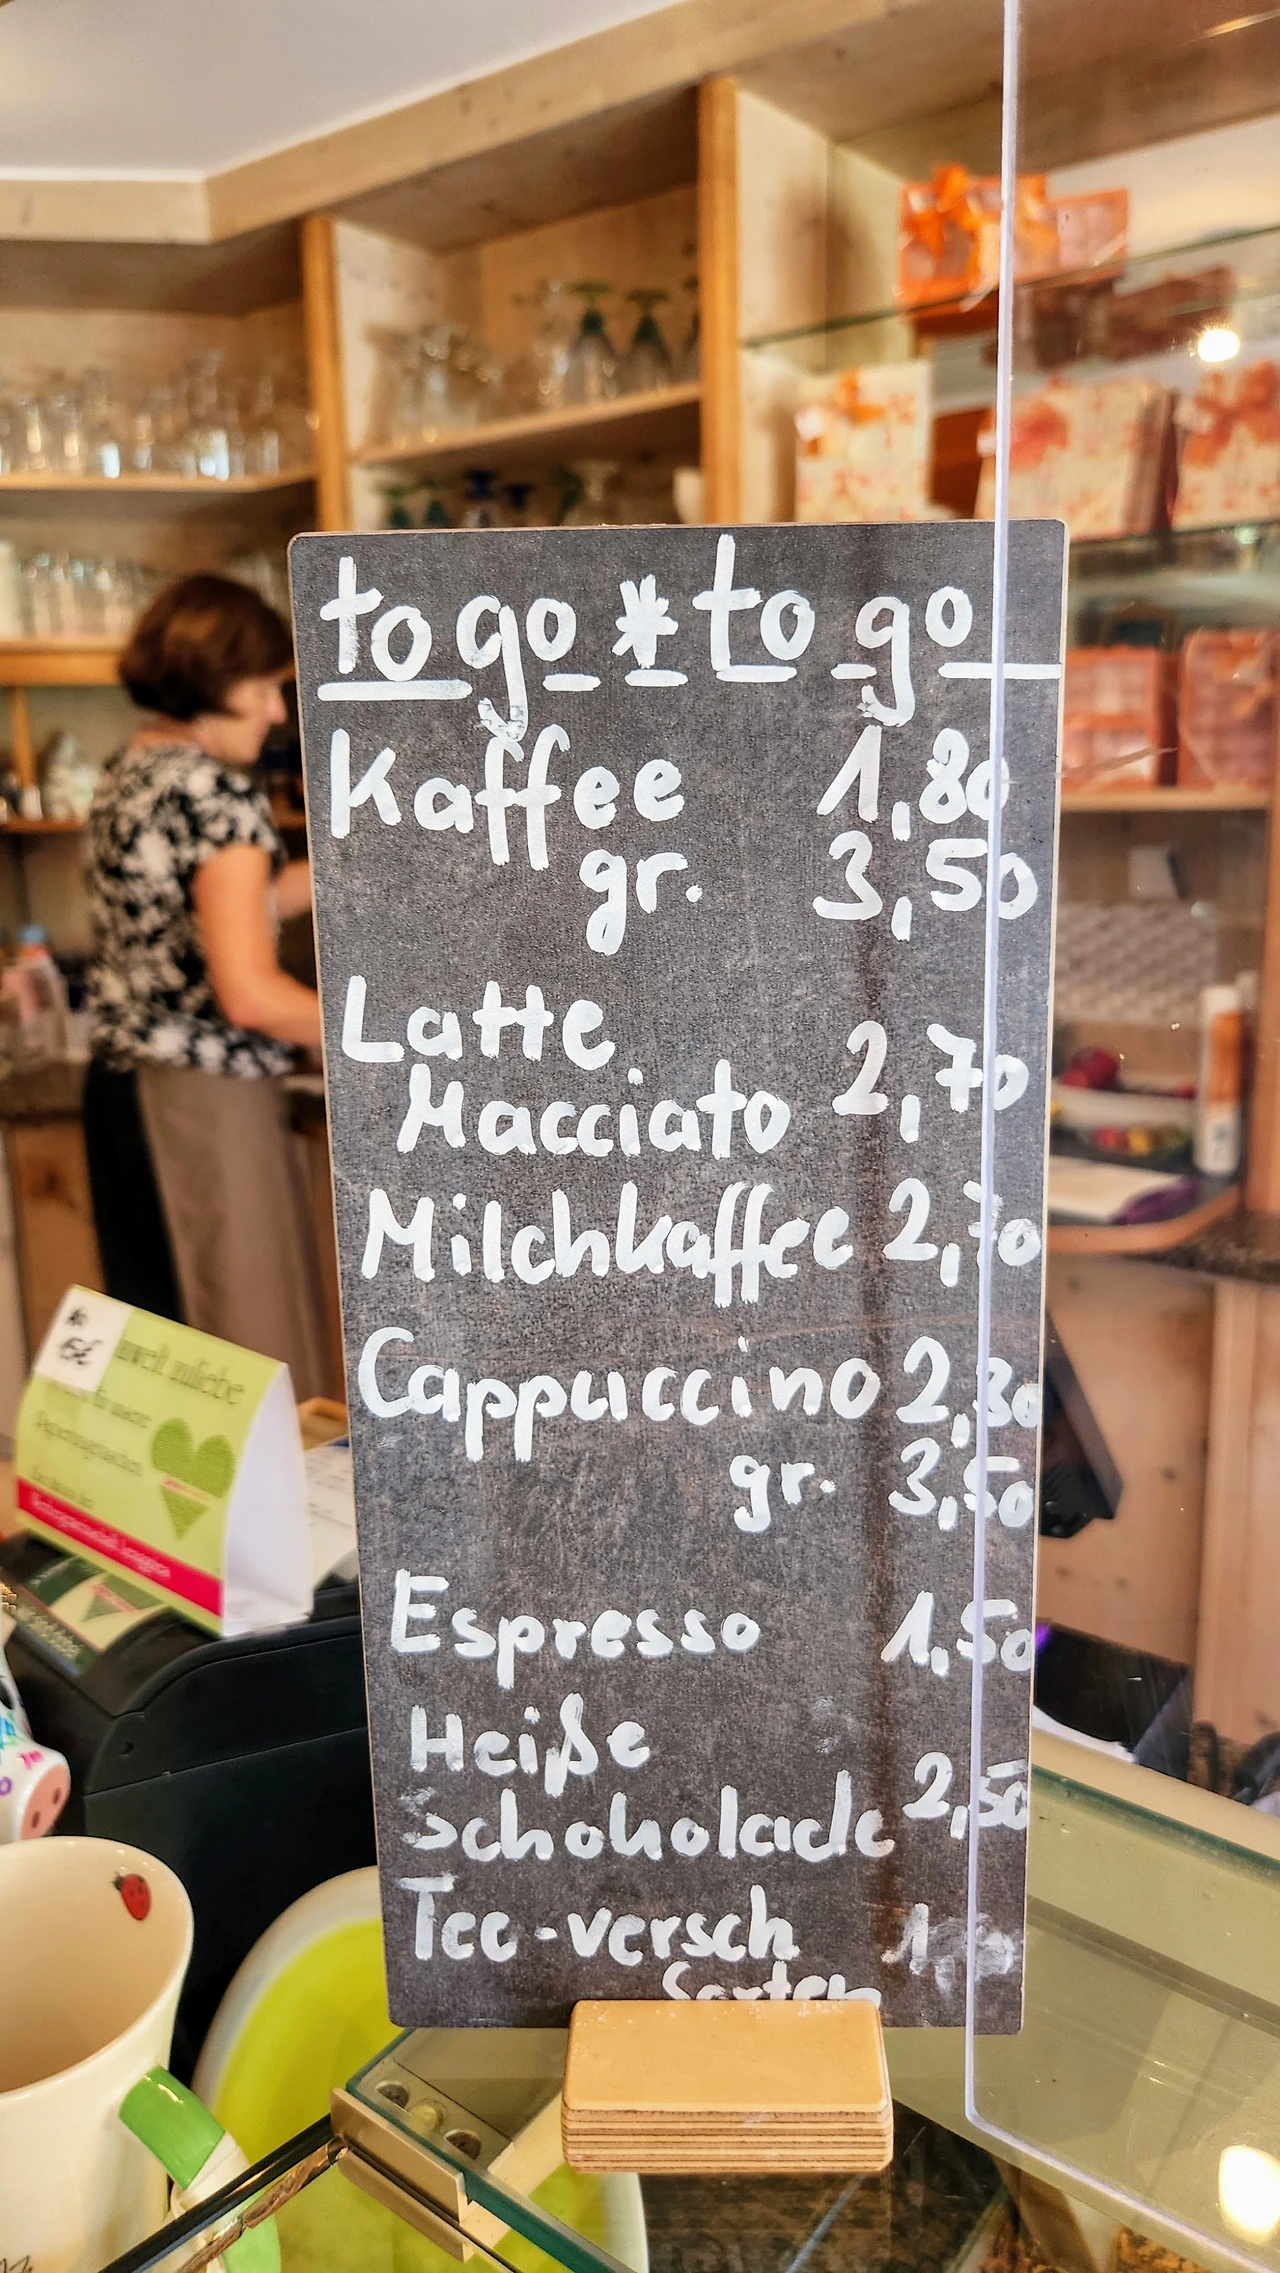 to go * to go
Kaffee 1,80
gr. 3,50
Latte
Macciato 2,70
Milchkaffee 2,70
Cappuccino 2,30
gr. 3,50
Espresso 1,50
Heiße
Schokolade 2,50
Tee-versch
Sorten